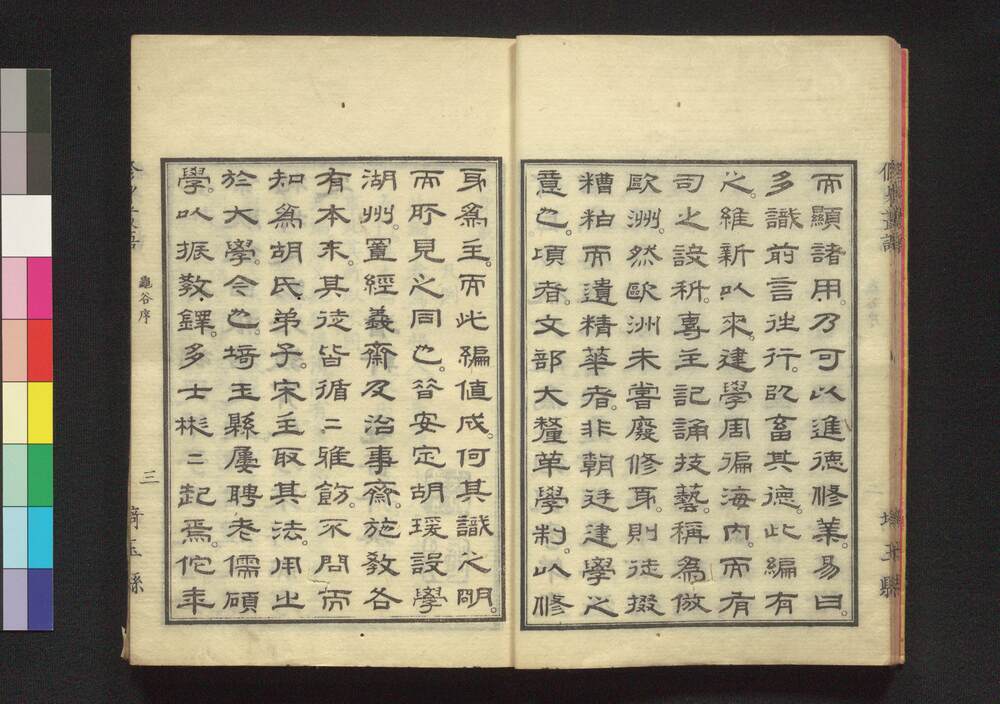 而顯諸用。乃可以進德修業。易曰。
多識前言往行。以畜其德。此編有
之。維新以來。建學周徧海内。而有
司之設科。專主記誦技藝。稱為倣
歐洲。然歐洲未嘗廢修身。則徒掇
糟粕而遺精華者。非朝廷建學之
意也。頃者。文部大釐革學制。以修
身爲主。而此編値成。何其識之明。
而所見之同也。昔安定胡瑗設學
湖州。置經義齋及治事齋。施敎各
有本末。其徒皆循二雅飭。不問而
知爲胡氏弟子。宋主取其法。用之
於大學。今也。埼玉縣屢聘老儒碩
學。以振敎鐸。多士彬二起焉。佗年
龜谷序
三
埼玉縣